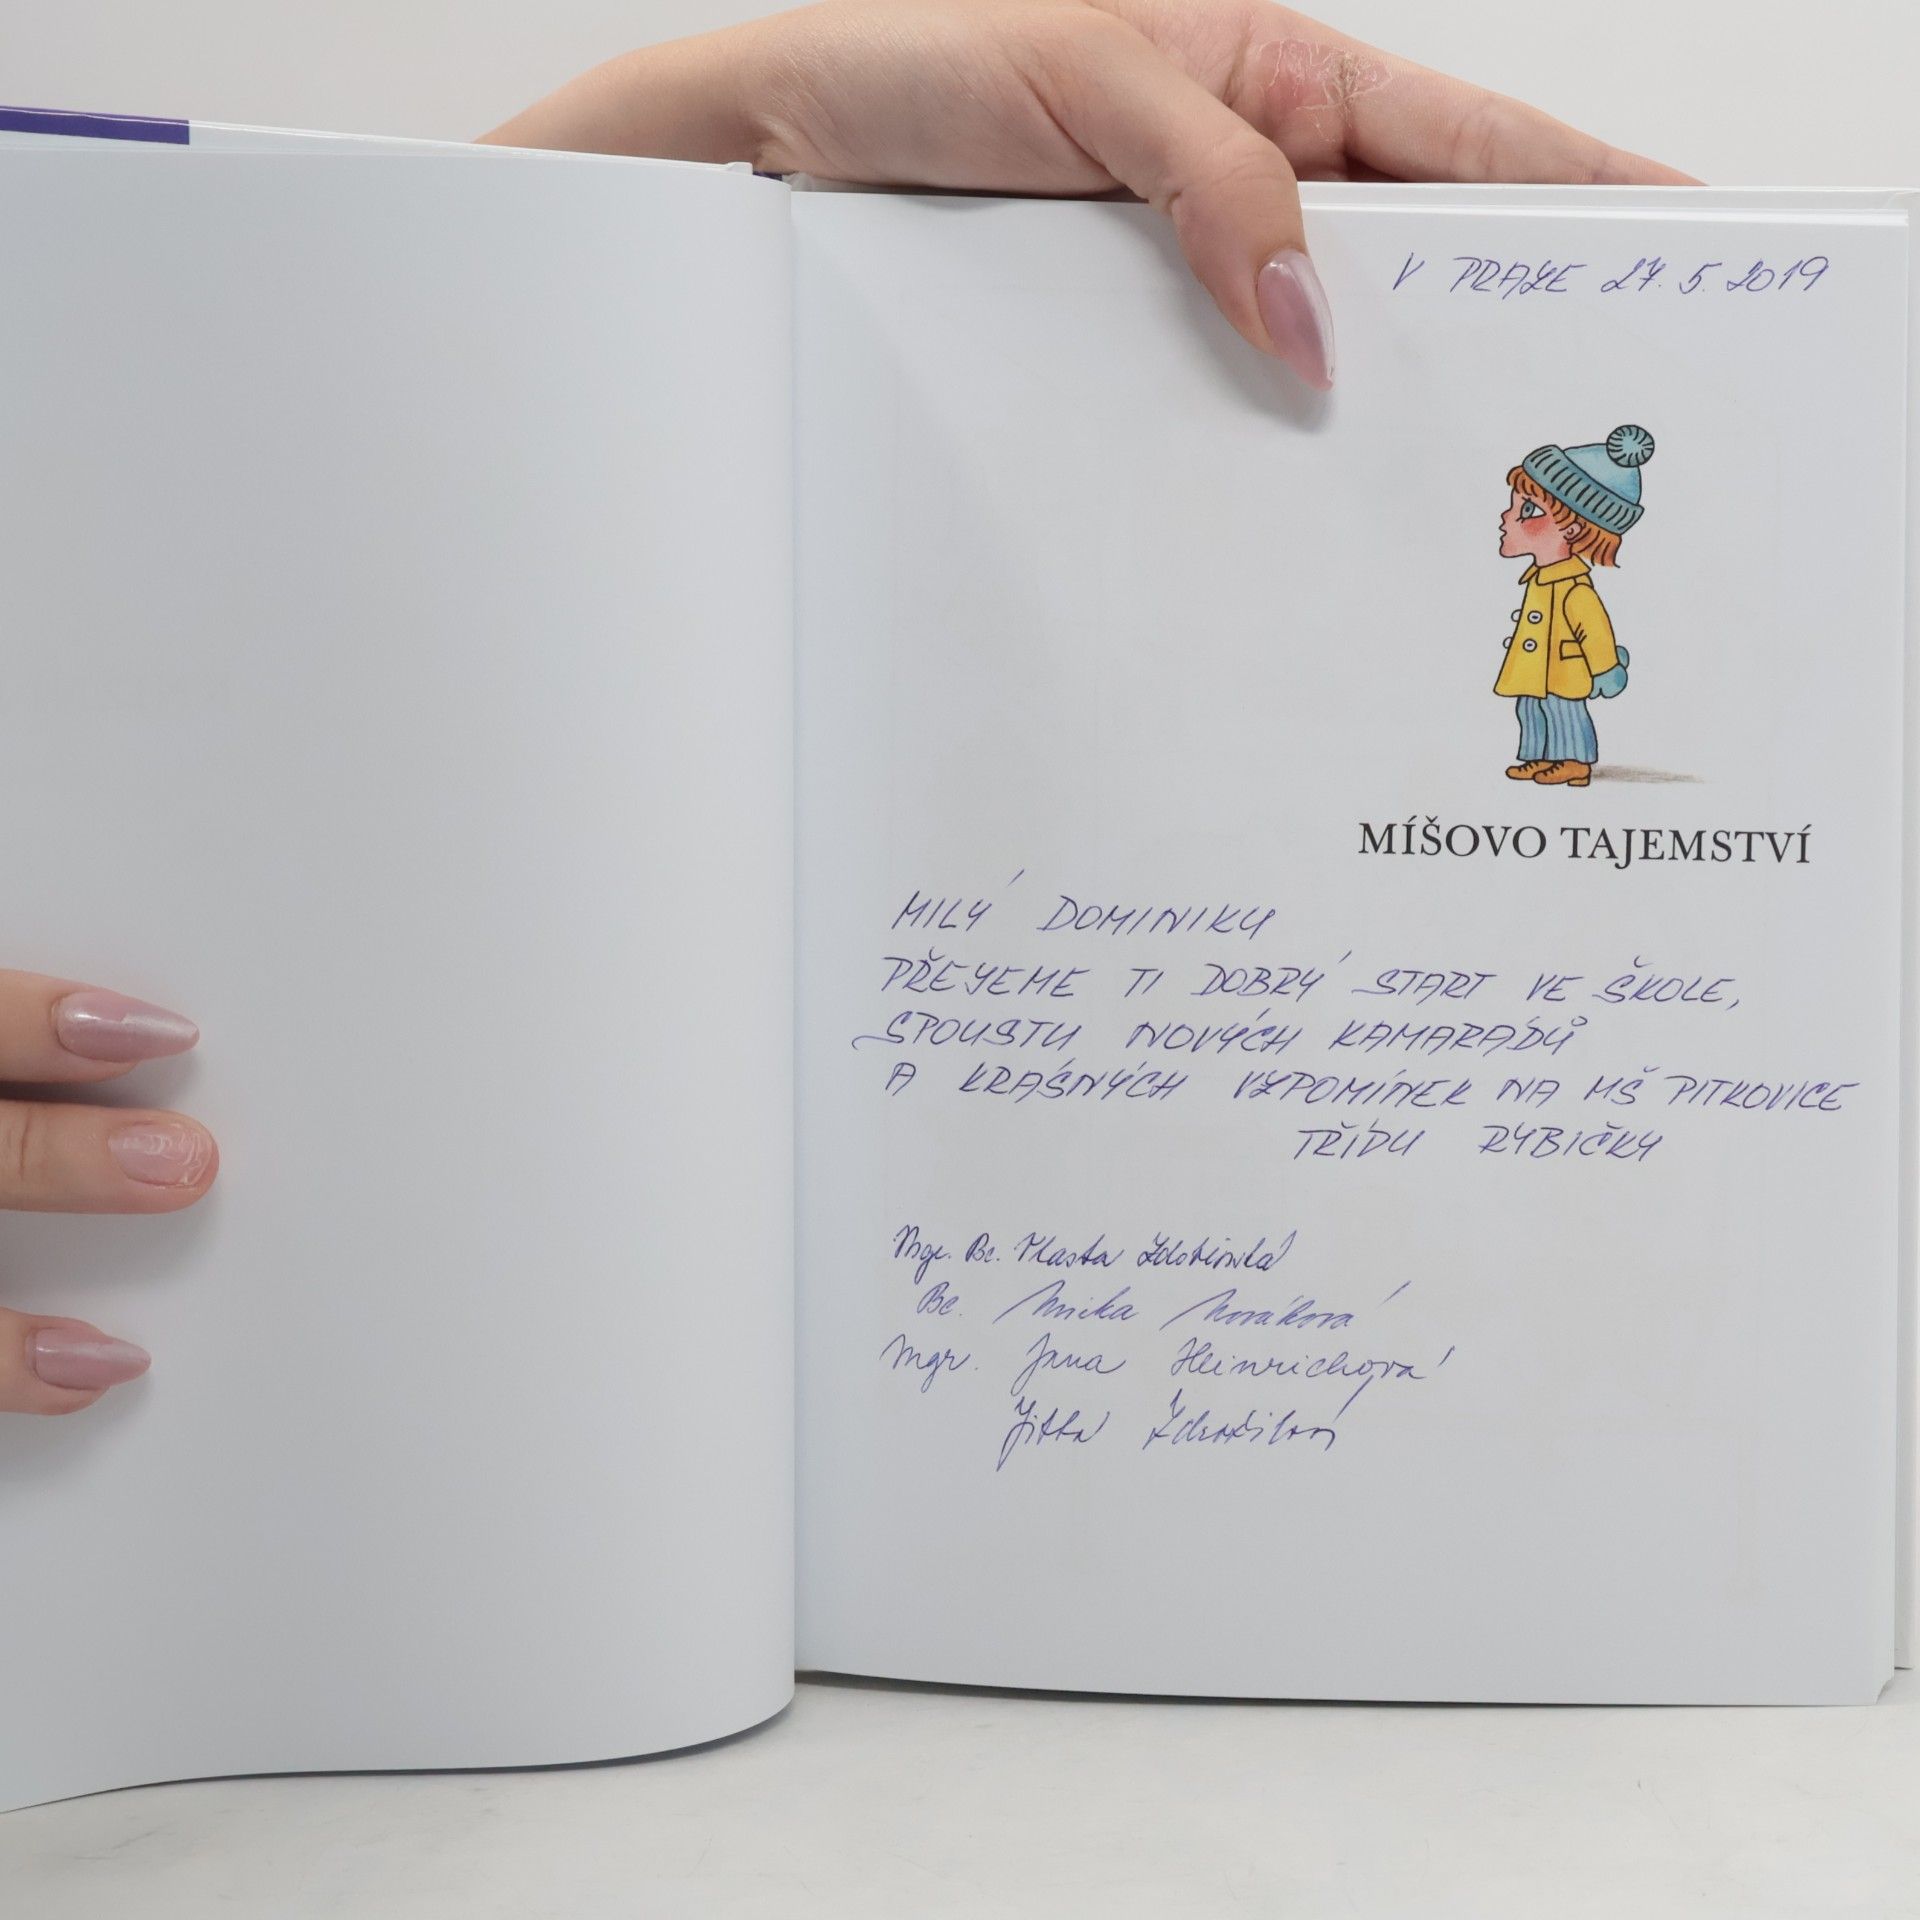 V PRAZE 27. 5. 2019
MÍŠOVO TAJEMSTVÍ
MILÝ DOMINIKU
PŘEJEME TI DOBRÝ START VE ŠKOLE,
SPOUSTU NOVÝCH KAMARÁDŮ
A KRÁSNÝCH VZPOMÍNEK NA MŠ PITKOVICE
TŘÍDU RYBIČKY
Mgr. Bc. Vlasta
Bc. Nováková
Mgr. Jana Heinrichová
Jitka